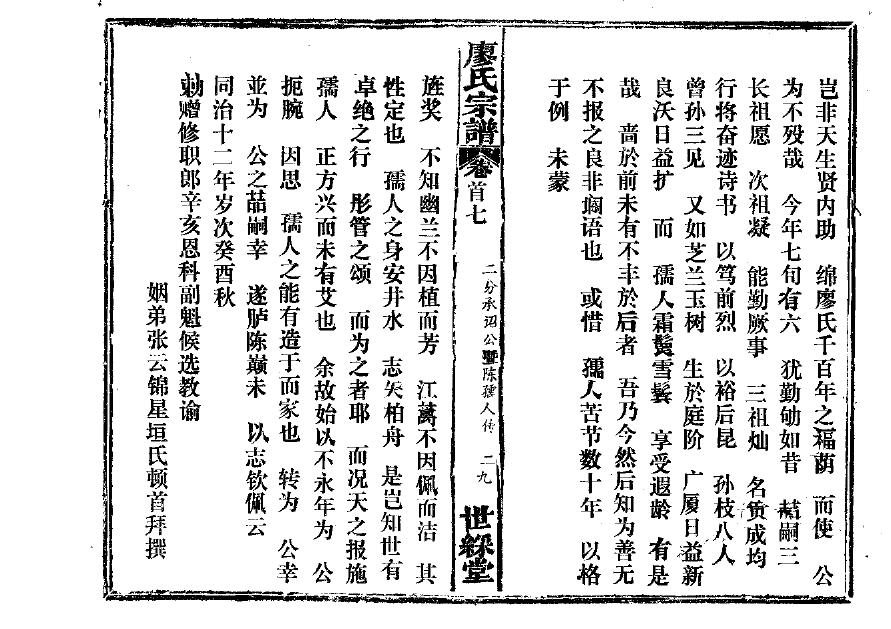 岂非天生贤内助 绵廖氏千百年之福荫 而使 公
为不殁哉 今年七旬有六 犹勤劬如昔 喆嗣三
长祖愿 次祖凝 能勤厥事 三祖灿 名赞成均
行将奋迹诗书 以笃前烈 以裕后昆 孙枝八人
曾孙三见 又如芝兰玉树 生於庭阶 广厦日益新
良沃日益扩 而 孺人霜鬓雪鬟 享受遐龄 有是
哉 啬於前未有不丰於后者 吾乃今然后知为善无
不报之良非诬语也 或惜 孺人苦节数十年 以格
于例 未蒙
廖氏宗譜 卷首七 二分承诏公暨陈孺人传 二九 世綵堂
旌奖 不知幽兰不因植而芳 江蓠不因佩而洁 其
性定也 孺人之身安井水 志矢柏舟 是岂知世有
卓绝之行 彤管之颂 而为之者耶 而况天之报施
孺人 正方兴而未有艾也 余故始以不永年为 公
扼腕 因思 孺人之能有造于而家也 转为 公幸
並为 公之喆嗣幸 遂胪陈巅末 以志钦佩云
同治十二年岁次癸酉秋
勅赠修职郎辛亥恩科副魁候选教谕
姻弟张云锦星垣氏顿首拜撰